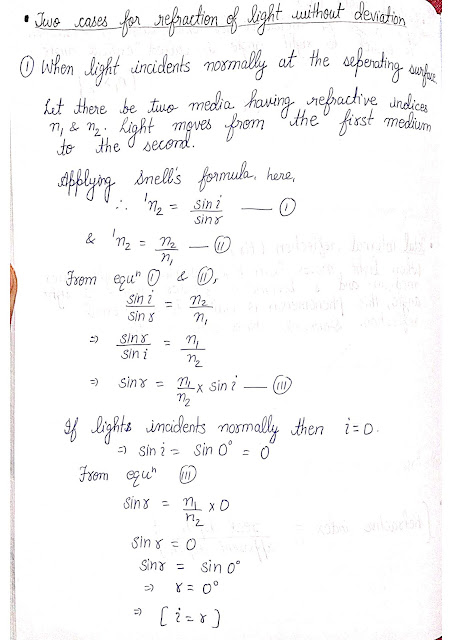 • Two cases for refraction of light without deviation
① When light incidents normally at the seperating surface
Let there be two media having refractive indices
n₁ & n₂. Light moves from the first medium
to the second.
Applying Snell's formula, here,
∴ ¹n₂ = sin i / sin r — ①
& ¹n₂ = n₂ / n₁ — ⑪
From equⁿ ① & ⑪,
sin i / sin r = n₂ / n₁
⇒ sin r / sin i = n₁ / n₂
⇒ sin r = n₁ / n₂ × sin i — ⑪⑪
If lights incidents normally then i = 0.
⇒ sin i = sin 0° = 0
From equⁿ (III)
sin r = n₁ / n₂ × 0
sin r = 0
sin r = sin 0°
⇒ r = 0°
⇒ [ i = r ]